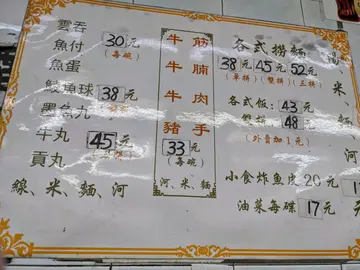 雲吞
魚付 30元
(每碗)
魚蛋
鯪魚球 38元
墨魚丸
牛丸 45元
貢丸
線、米、麵、河
牛筋
牛腩
牛肉
豬手
33元
(每碗)
河、米、麵
各式撈麵
38元 45元 52元
(單拼) (雙拼) (三拼)
各式飯: 43元
48元
(外賣加1元)
小食炸魚皮20元
油菜每碟 17元
湯、
米、
河